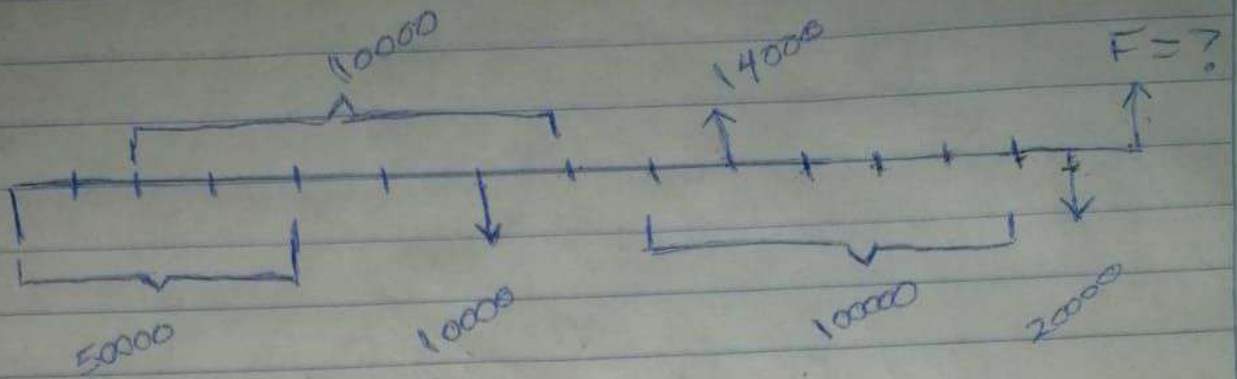 10000
14000
F=?
50000
10000
100000
20000